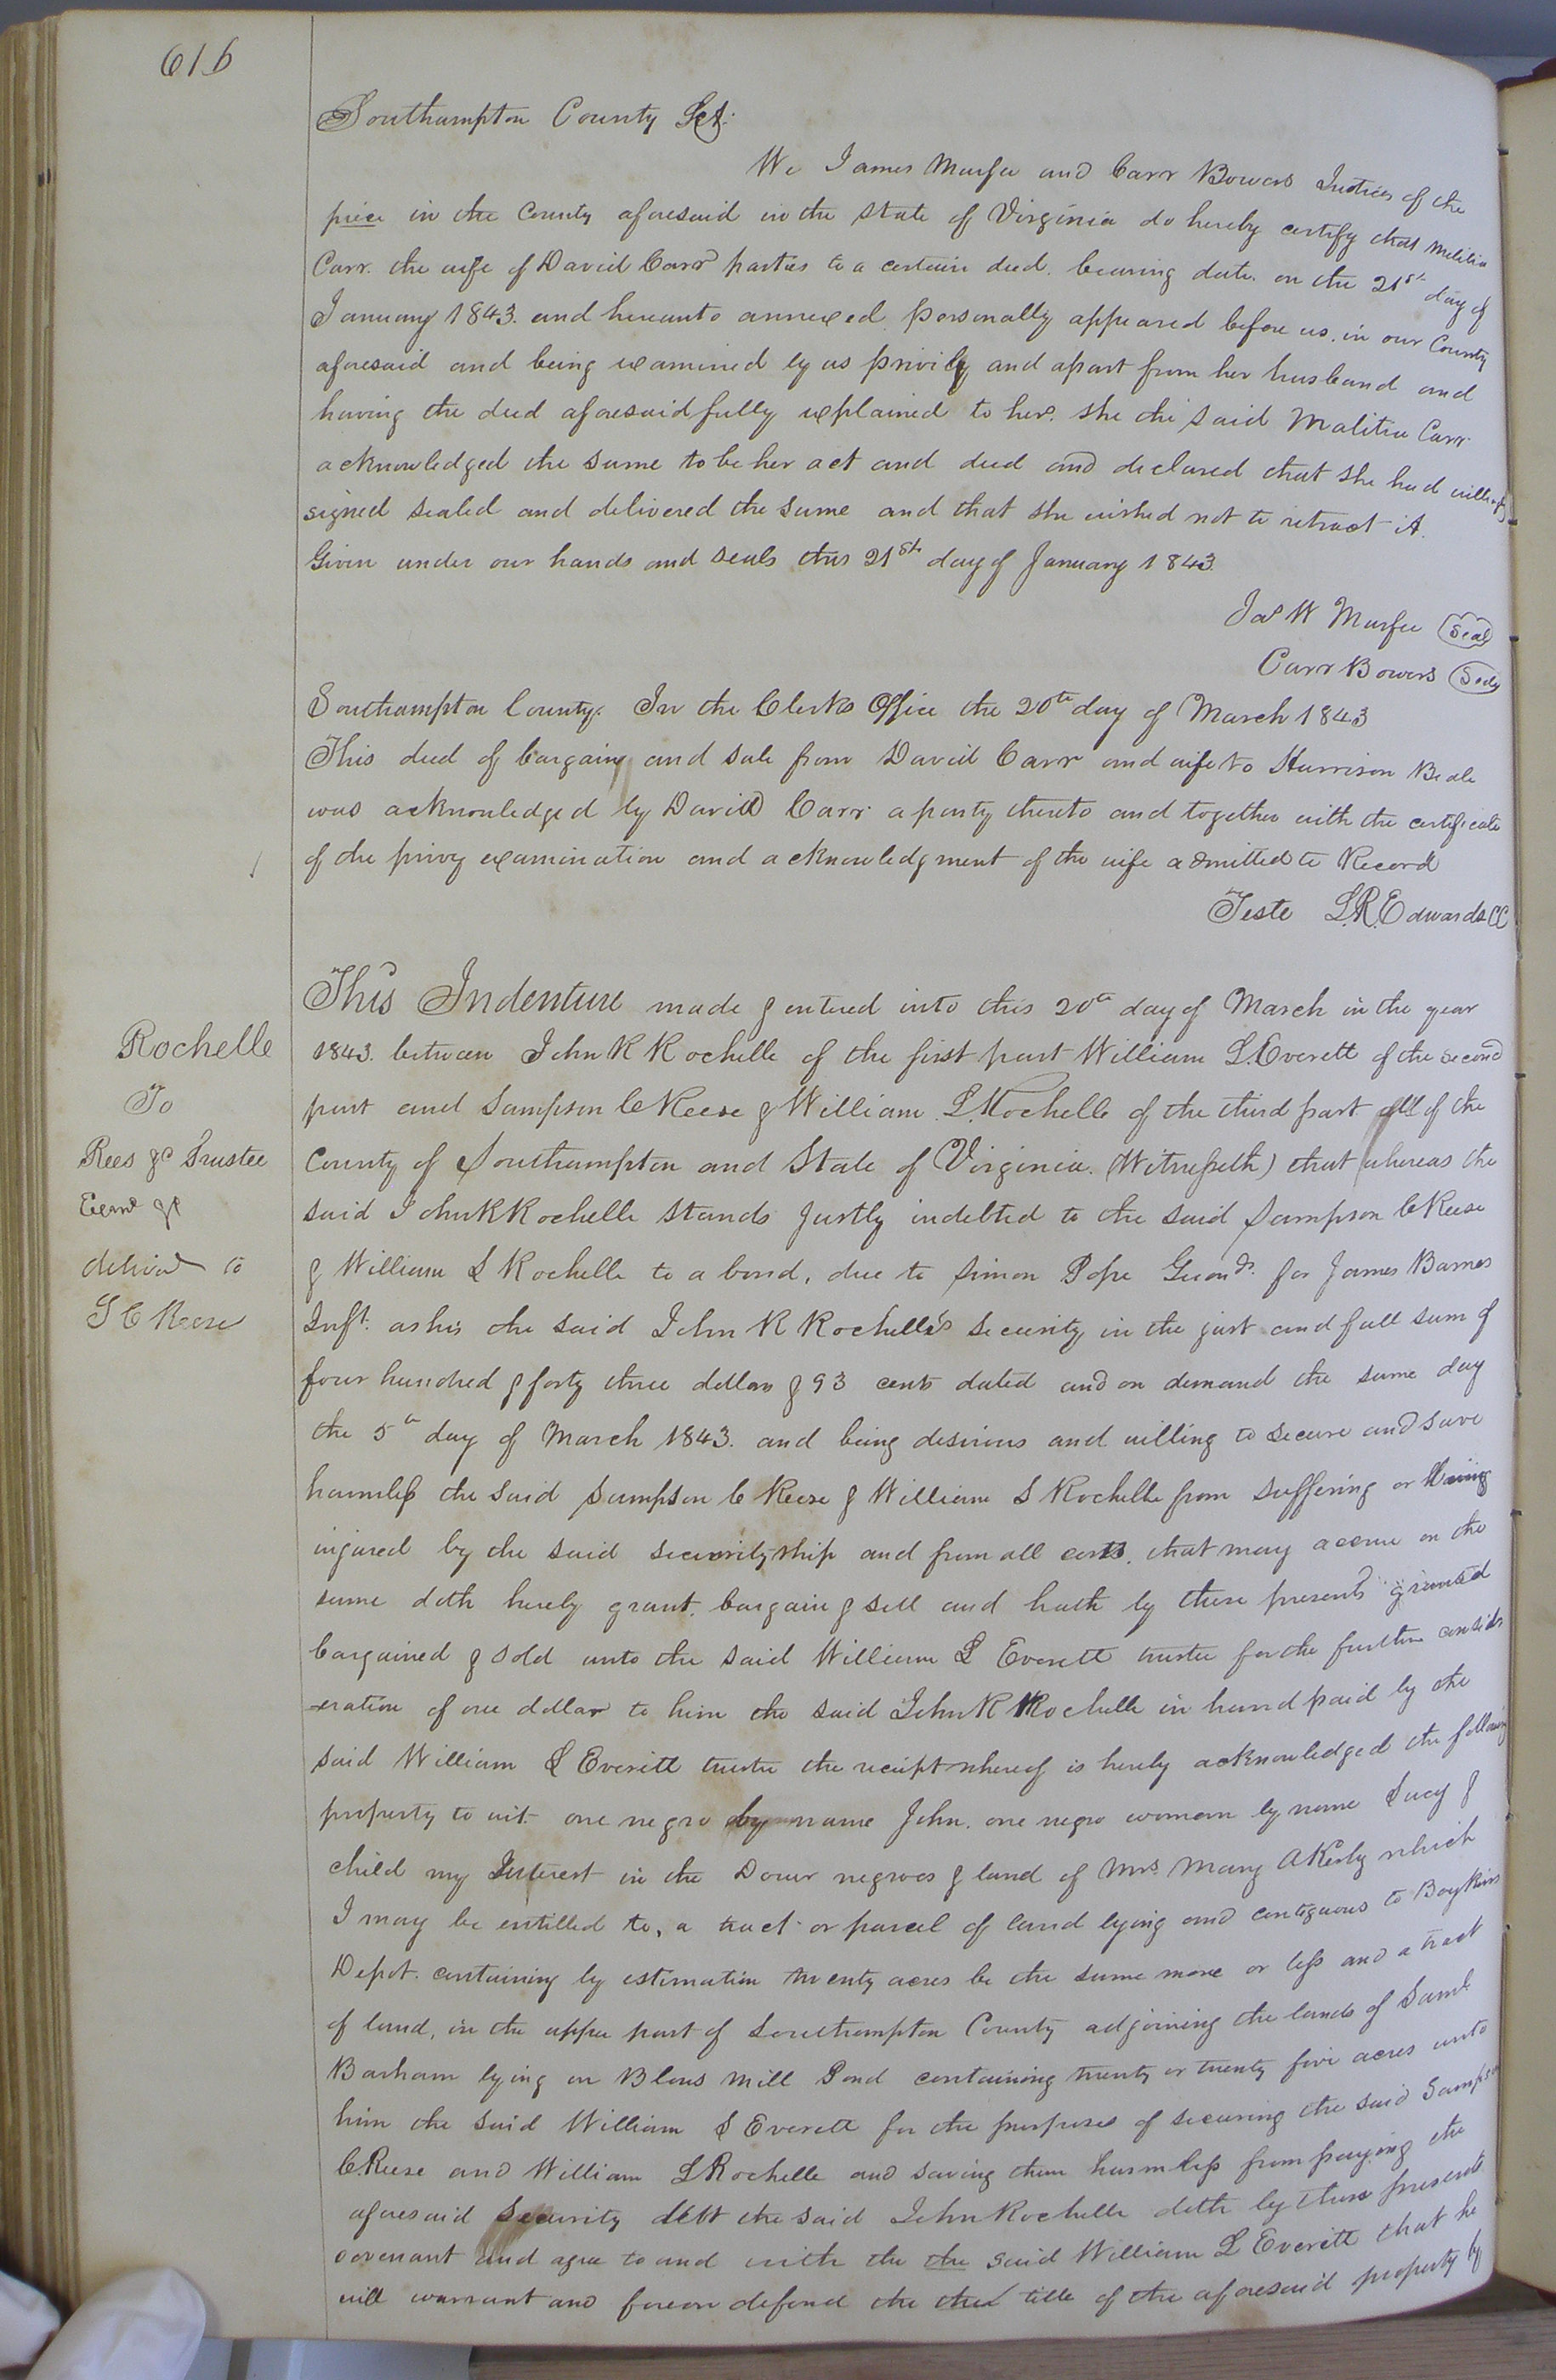 616
Southampton County Sct:
We James Murfee and Carr Bowers Justices of the
peice in the County aforesaid in the State of Virginia do hereby certify that Malitia
Carr. the wife of David Carr parties to a certain deed. bearing date. on the 21st day of
January 1843. and hereunto annexed personally appeared before us. in our County
aforesaid and being examined by us privily and apart from her husband and
having the deed aforesaid fully explained to her. she the said Malitia Carr.
acknowledged the same to be her act and deed and declared that she had willingly
signed sealed and delivered the same and that she wished not to retract it.
Given under our hands and seals this 21st day of January 1843.
Jas W Murfee Seal
Carr Bowers Seal
Southampton County. In the Clerks Office the 20th day of March 1843
This deed of bargain and sale from David Carr and wife to Harrison Beale
was acknowledged by David Carr a party thereto and together with the certificate
of the privy examination and acknowledgment of the wife admitted to Record
Teste L.R. Edwards CC
Rochelle
To
Rees &c Trustee
Exmd &c
deliverd to
S C Reese
This Indenture made & entered into this 20th day of March in the year
1843. between John R Rochelle of the first part William L. Everett of the second
part and Sampson C Reese & William L. Rochelle of the third part all of the
County of Southampton and State of Virginia. (Witnesseth) that whereas the
said John R Rochelle stands justly indebted to the said Sampson C Reese
& William L Rochelle to a bond, due to Simon Pope Guond. for James Barnes
Inft. as his the said John R Rochelle's security in the just and full sum of
four hundred & forty three dollars & 93 cents dated and on demand the same day
the 5th day of March 1843. and being desirous and willing to secure and save
harmless the said Sampson C Reese & William L Rochelle from suffering or being
injured by the said securityship and from all costs. that may accrue on the
same doth hereby grant. bargain & sell and hath by these presents granted
bargained & sold unto the said William L Everett trustee for the further consid
-eration of one dollar to him the said John R Rochelle in hand paid by the
said William L Everett trustee the receipt whereof is hereby acknowledged the following
property to wit. one negro by name John. one negro woman by name Lucy &
child my Interest in the Dower negroes & land of Mrs. Mary A Kerby which
I may be entilled to, a tract or parcel of land lying and contiguous to Boykins
Depot. containing by estimation twenty acres be the same more or less and a tract
of land, in the upper part of Southampton County adjoining the lands of Saml
Barham lying on Blows Mill Pond containing twenty or twenty five acres unto
him the said William L Everett for the purposes of securing the said Sampson
C. Reese and William L Rochelle and saving them harmless from paying the
aforesaid Security debt the said John Rochelle doth by these presents
covenant and agree to and with the the said William L Everett that he
will warrant and forever defend the the title of the aforesaid property by